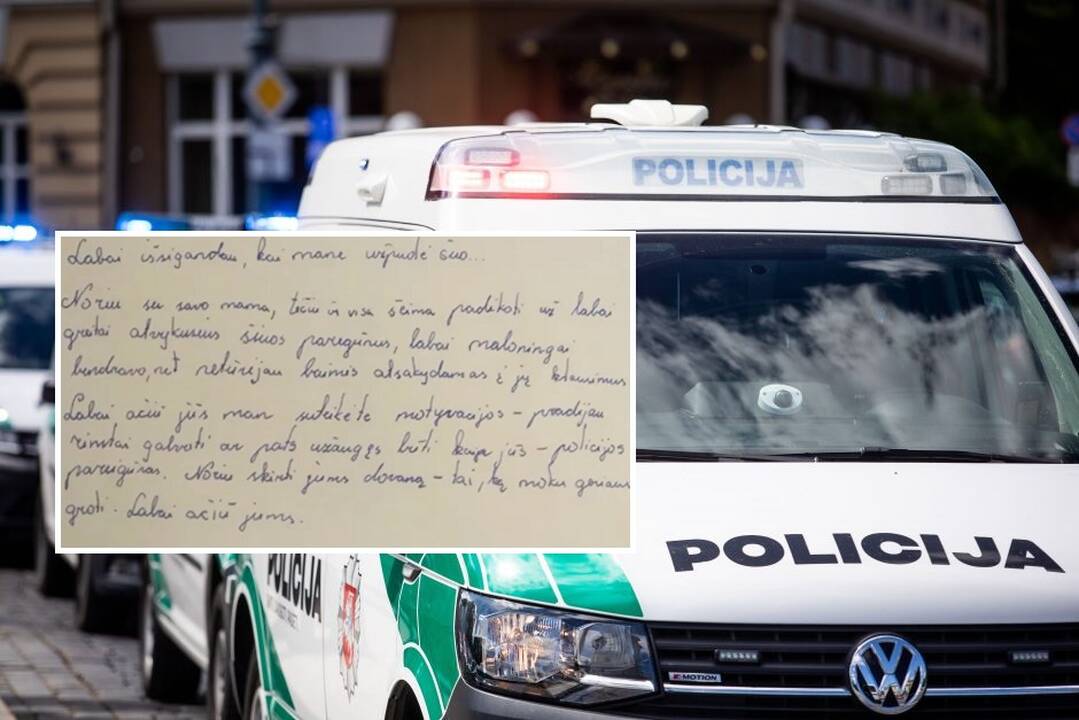 POLICIJA
Labai išsigandau, kai mane užpuolė šuo...
Noriu su savo mama, tėčiu ir visa šeima padėkoti už labai
greitai atvykusius šiuos pareigūnus, labai maloningai
bendravo, net neturėjau baimės atsakydamas į jų klausimus
Labai ačiū jūs man suteikėte motyvacijos - pradėjau
rimtai galvoti ar pats užaugęs būti kaip jūs - policijos
pareigūnas. Noriu skirti jums dovaną - tai, ką moku geriaus
groti. Labai ačiū jums.
POLICIJA
POLICIJA
E-MOTION